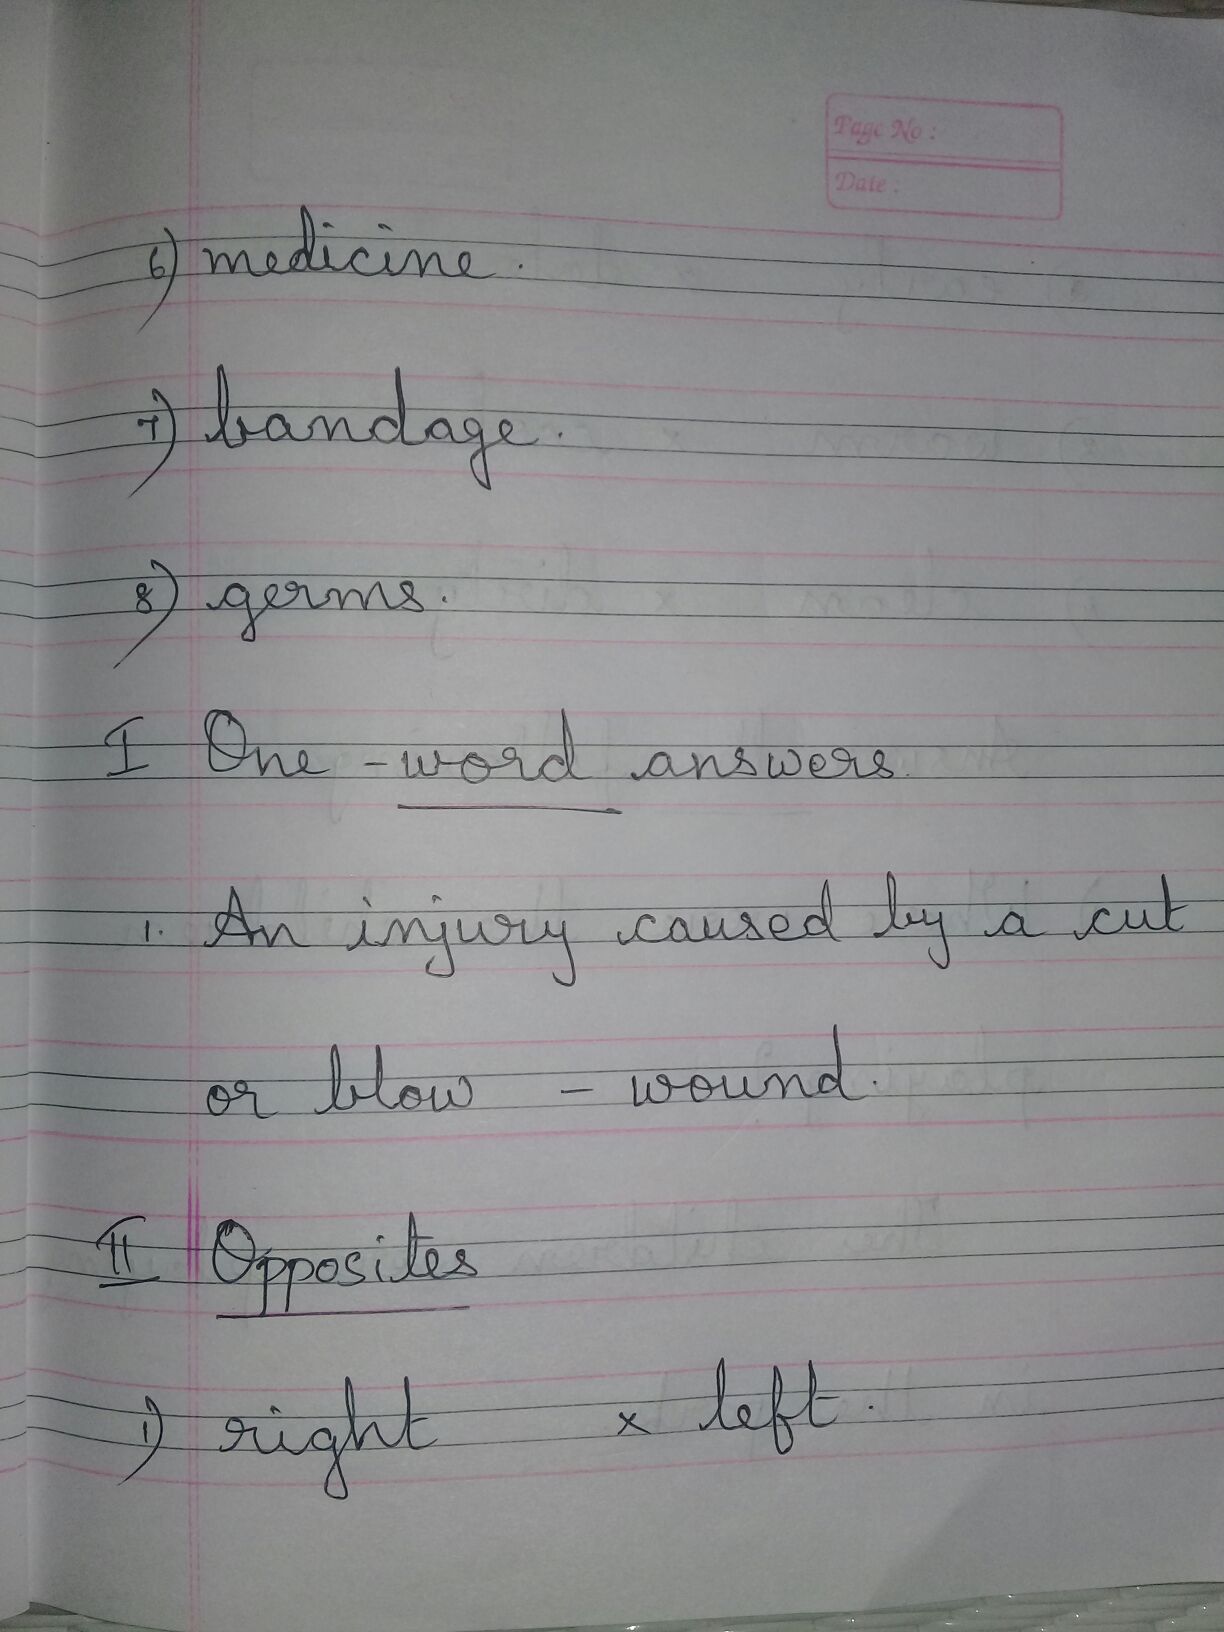 Page No :
Date :
6) medicine.
7) bandage.
8) germs.
I One - word answers.
1. An injury caused by a cut
or blow - wound.
II Opposites
1) right × left.